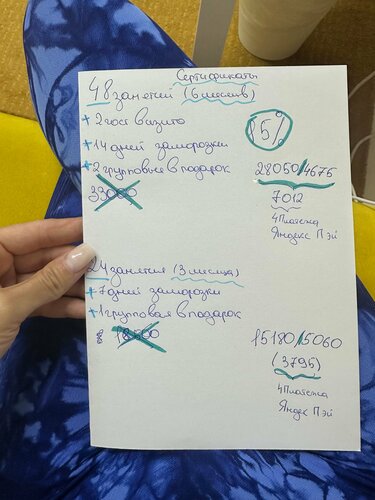 Сертификаты
48 занятий (6 месяцев)
+ 2 гост визита
15%
+ 14 дней заморозки
+ 2 групповые в подарок
28050/4675
33000
7012
4 Платежа
Яндекс Пэй
24 занятия (3 месяца)
+ 7 дней заморозки
+ 1 групповая в подарок
15180/5060
(3795)
4 Платежа
Яндекс Пэй